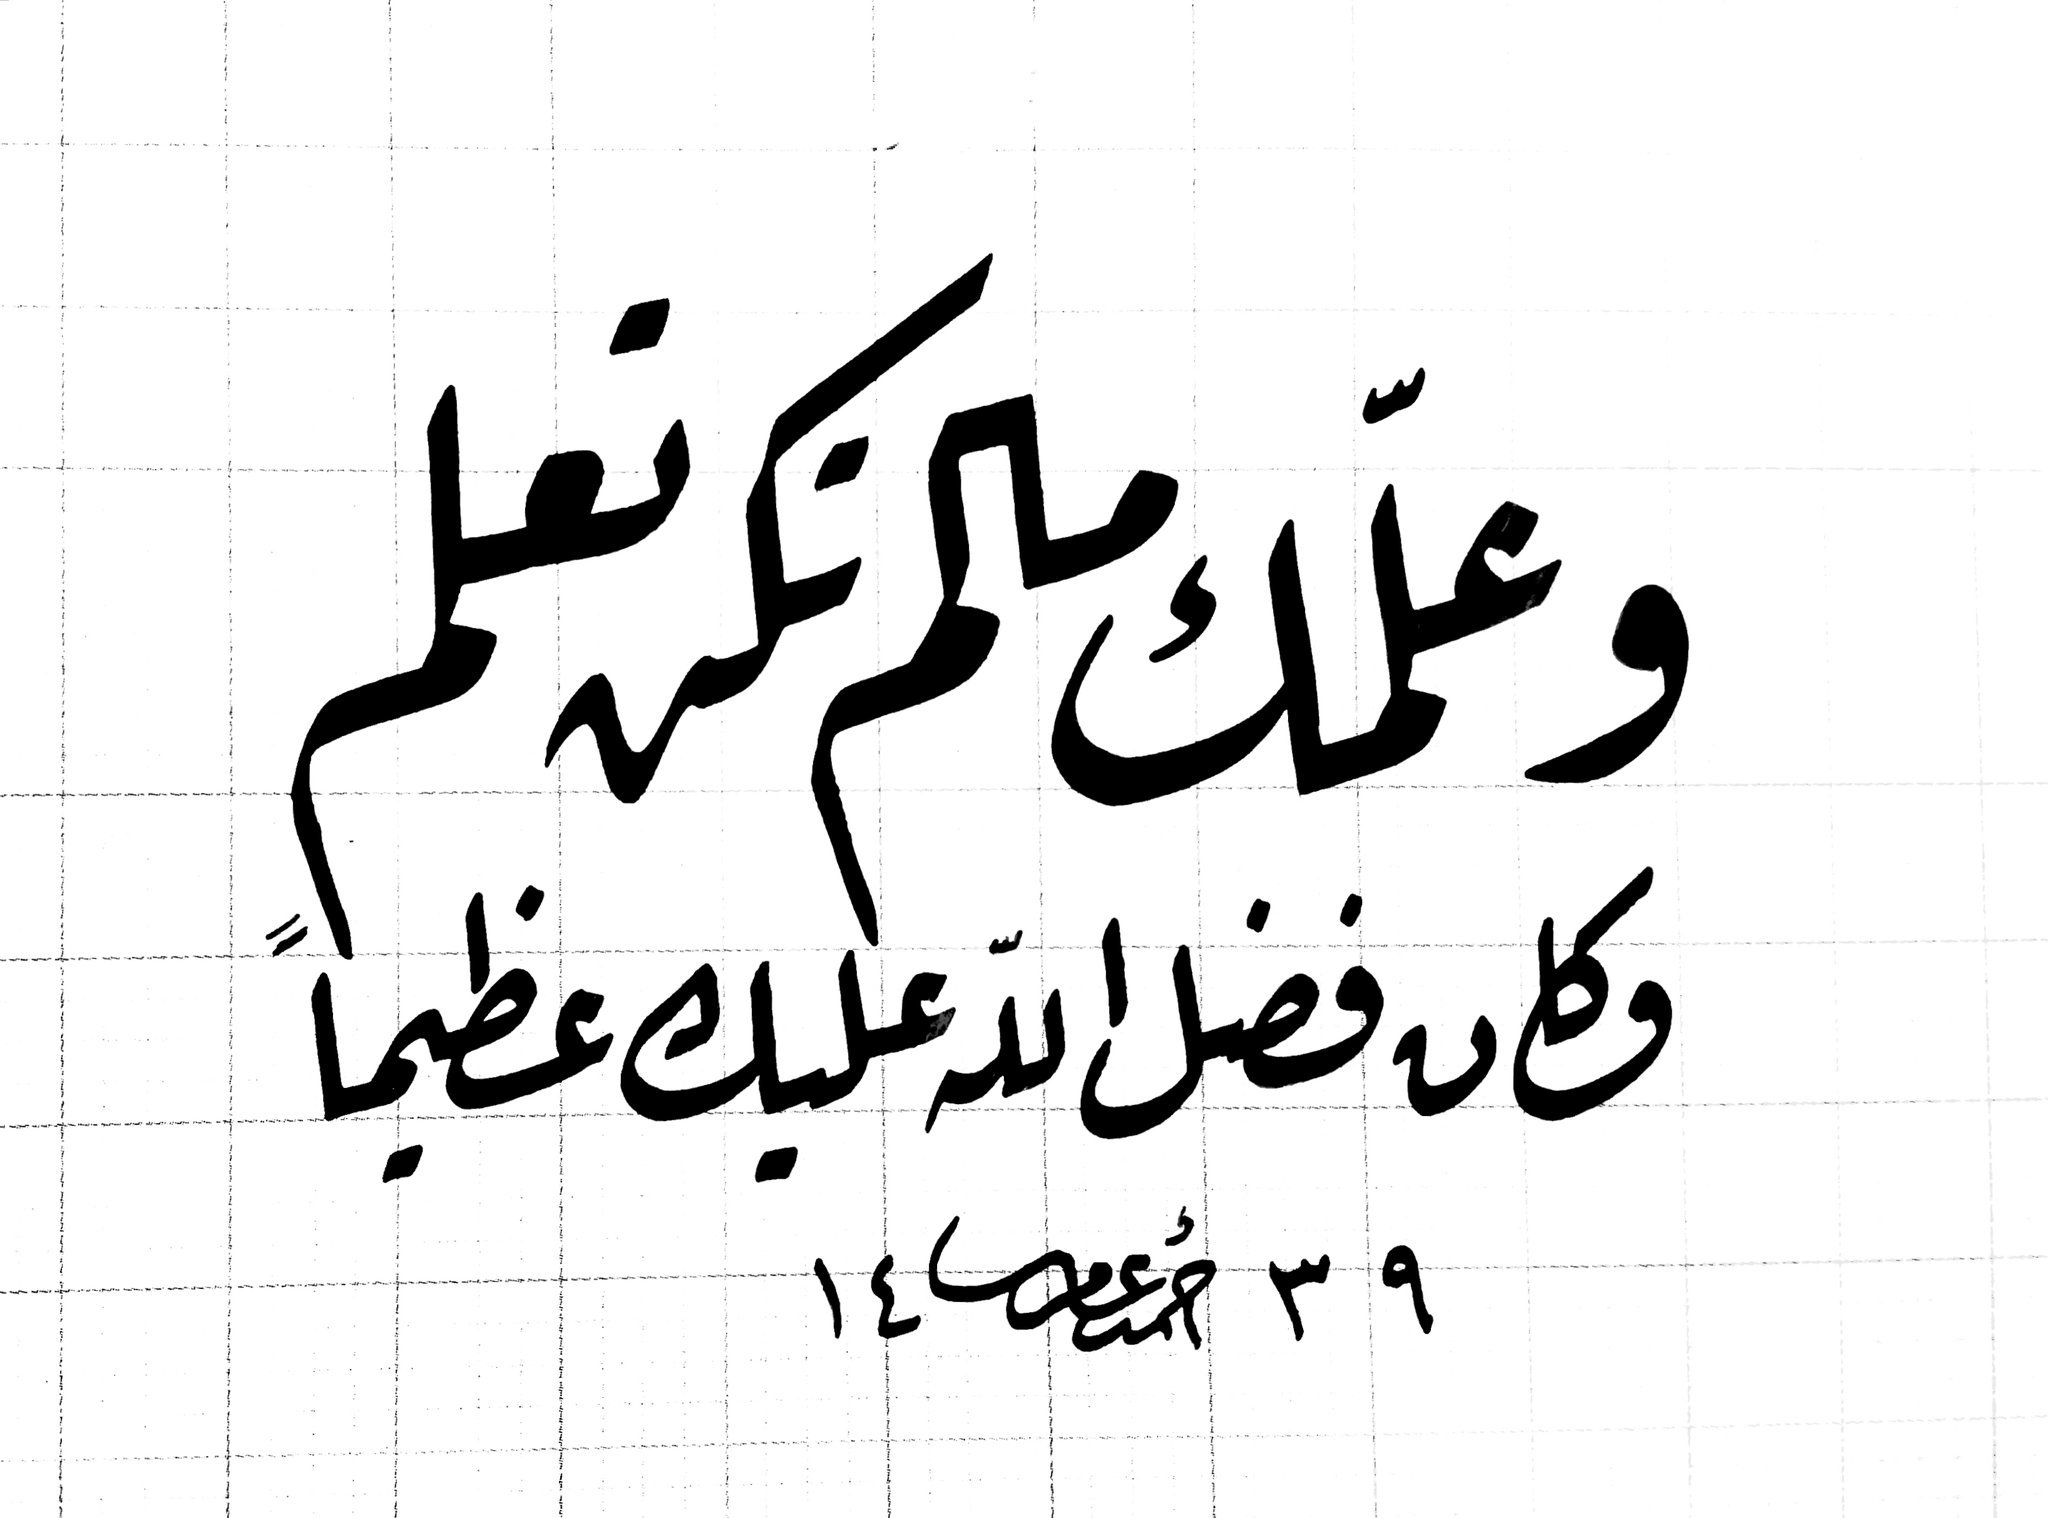 وعلّمك مالم تكن تعلم
وكان فضل اللّه عليك عظيماً
١٤ ٣٩